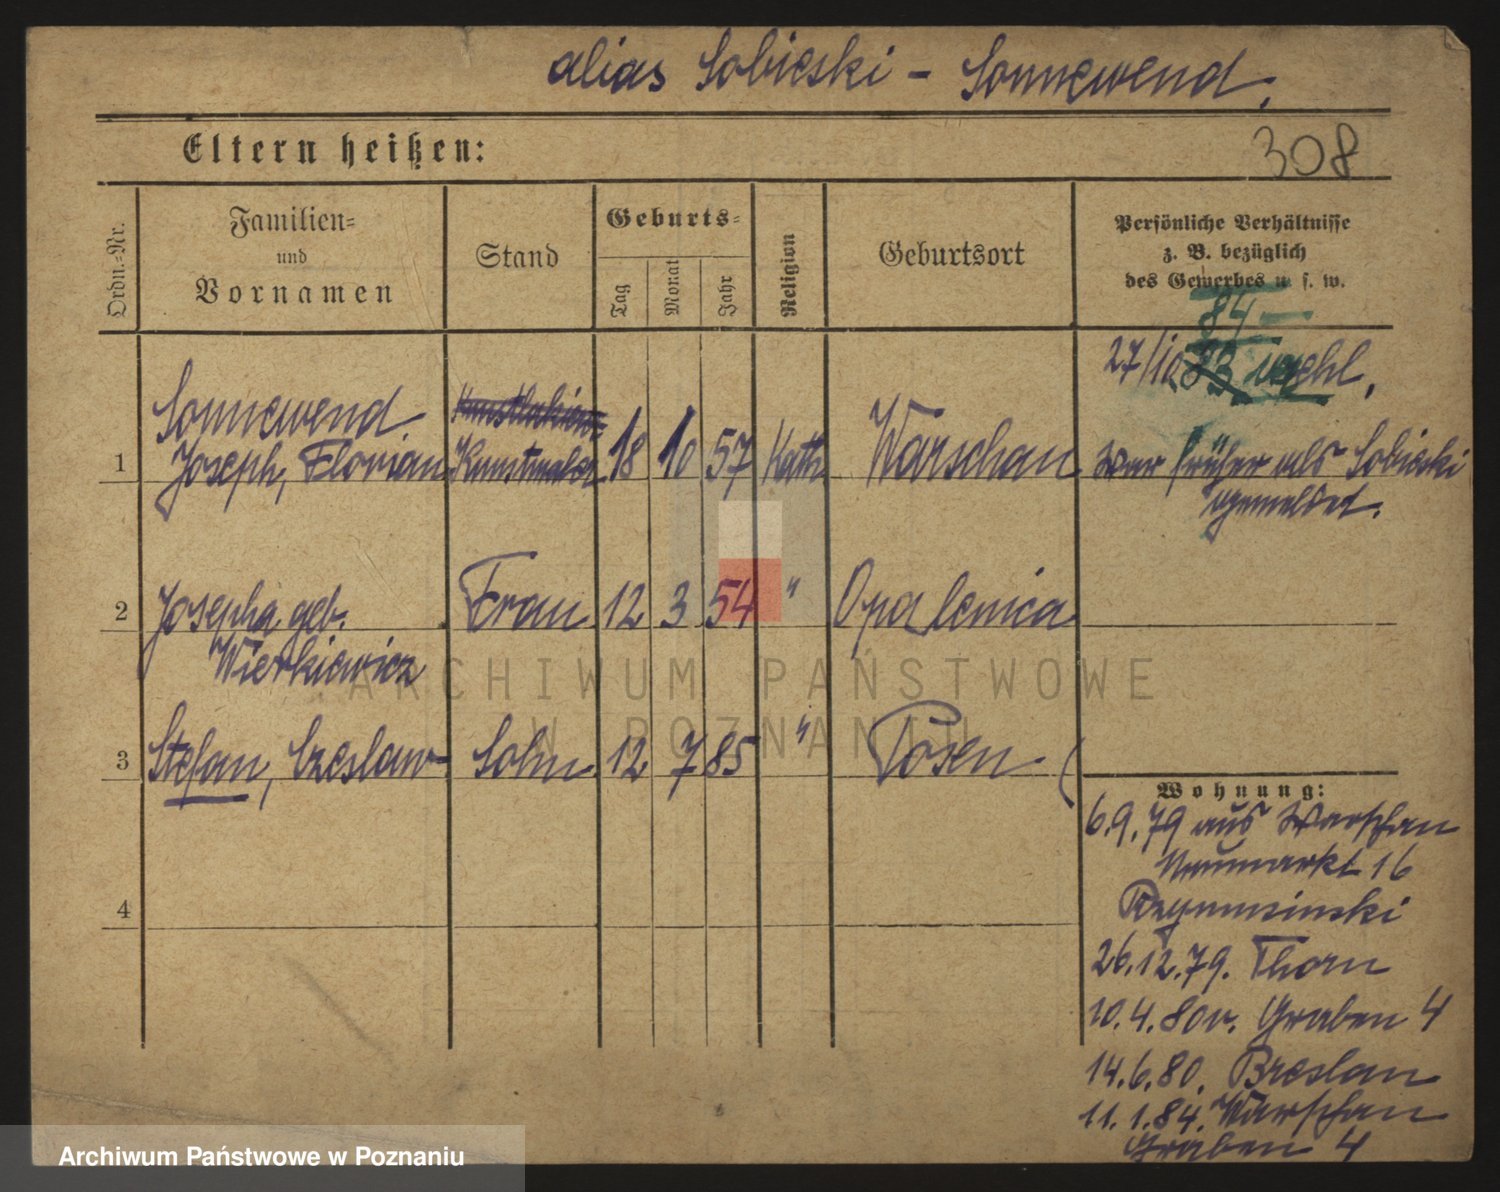 alias Sobieski - Sonnewend.
308
Eltern heißen:
Ordn.-Nr.
Familien-
und
Vornamen
Stand
Geburts-
Tag
Monat
Jahr
Religion
Geburtsort
Persönliche Verhältnisse
z. B. bezüglich
des Gewerbes u. s. w.
84
27/10 83 verehl.
1
Sonnewend
Joseph, Florian
Kunstmaler
18
10
57
Kath.
Warschau
war früher als Sobieski
gemeldet.
2
Josepha geb.
Frau
12
3
54
"
Opalenica
3
Stefan, Czeslaw
Sohn
12
7
85
"
Posen
4
Wohnung:
6.9.79 aus Warschau
Neumarkt 16
26.12.79. Thorn
10.4.80 v. Graben 4
14.6.80. Breslau
11.1.84. Warschau
Graben 4
ARCHIWUM PAŃSTWOWE
W POZNANIU
Archiwum Państwowe w Poznaniu